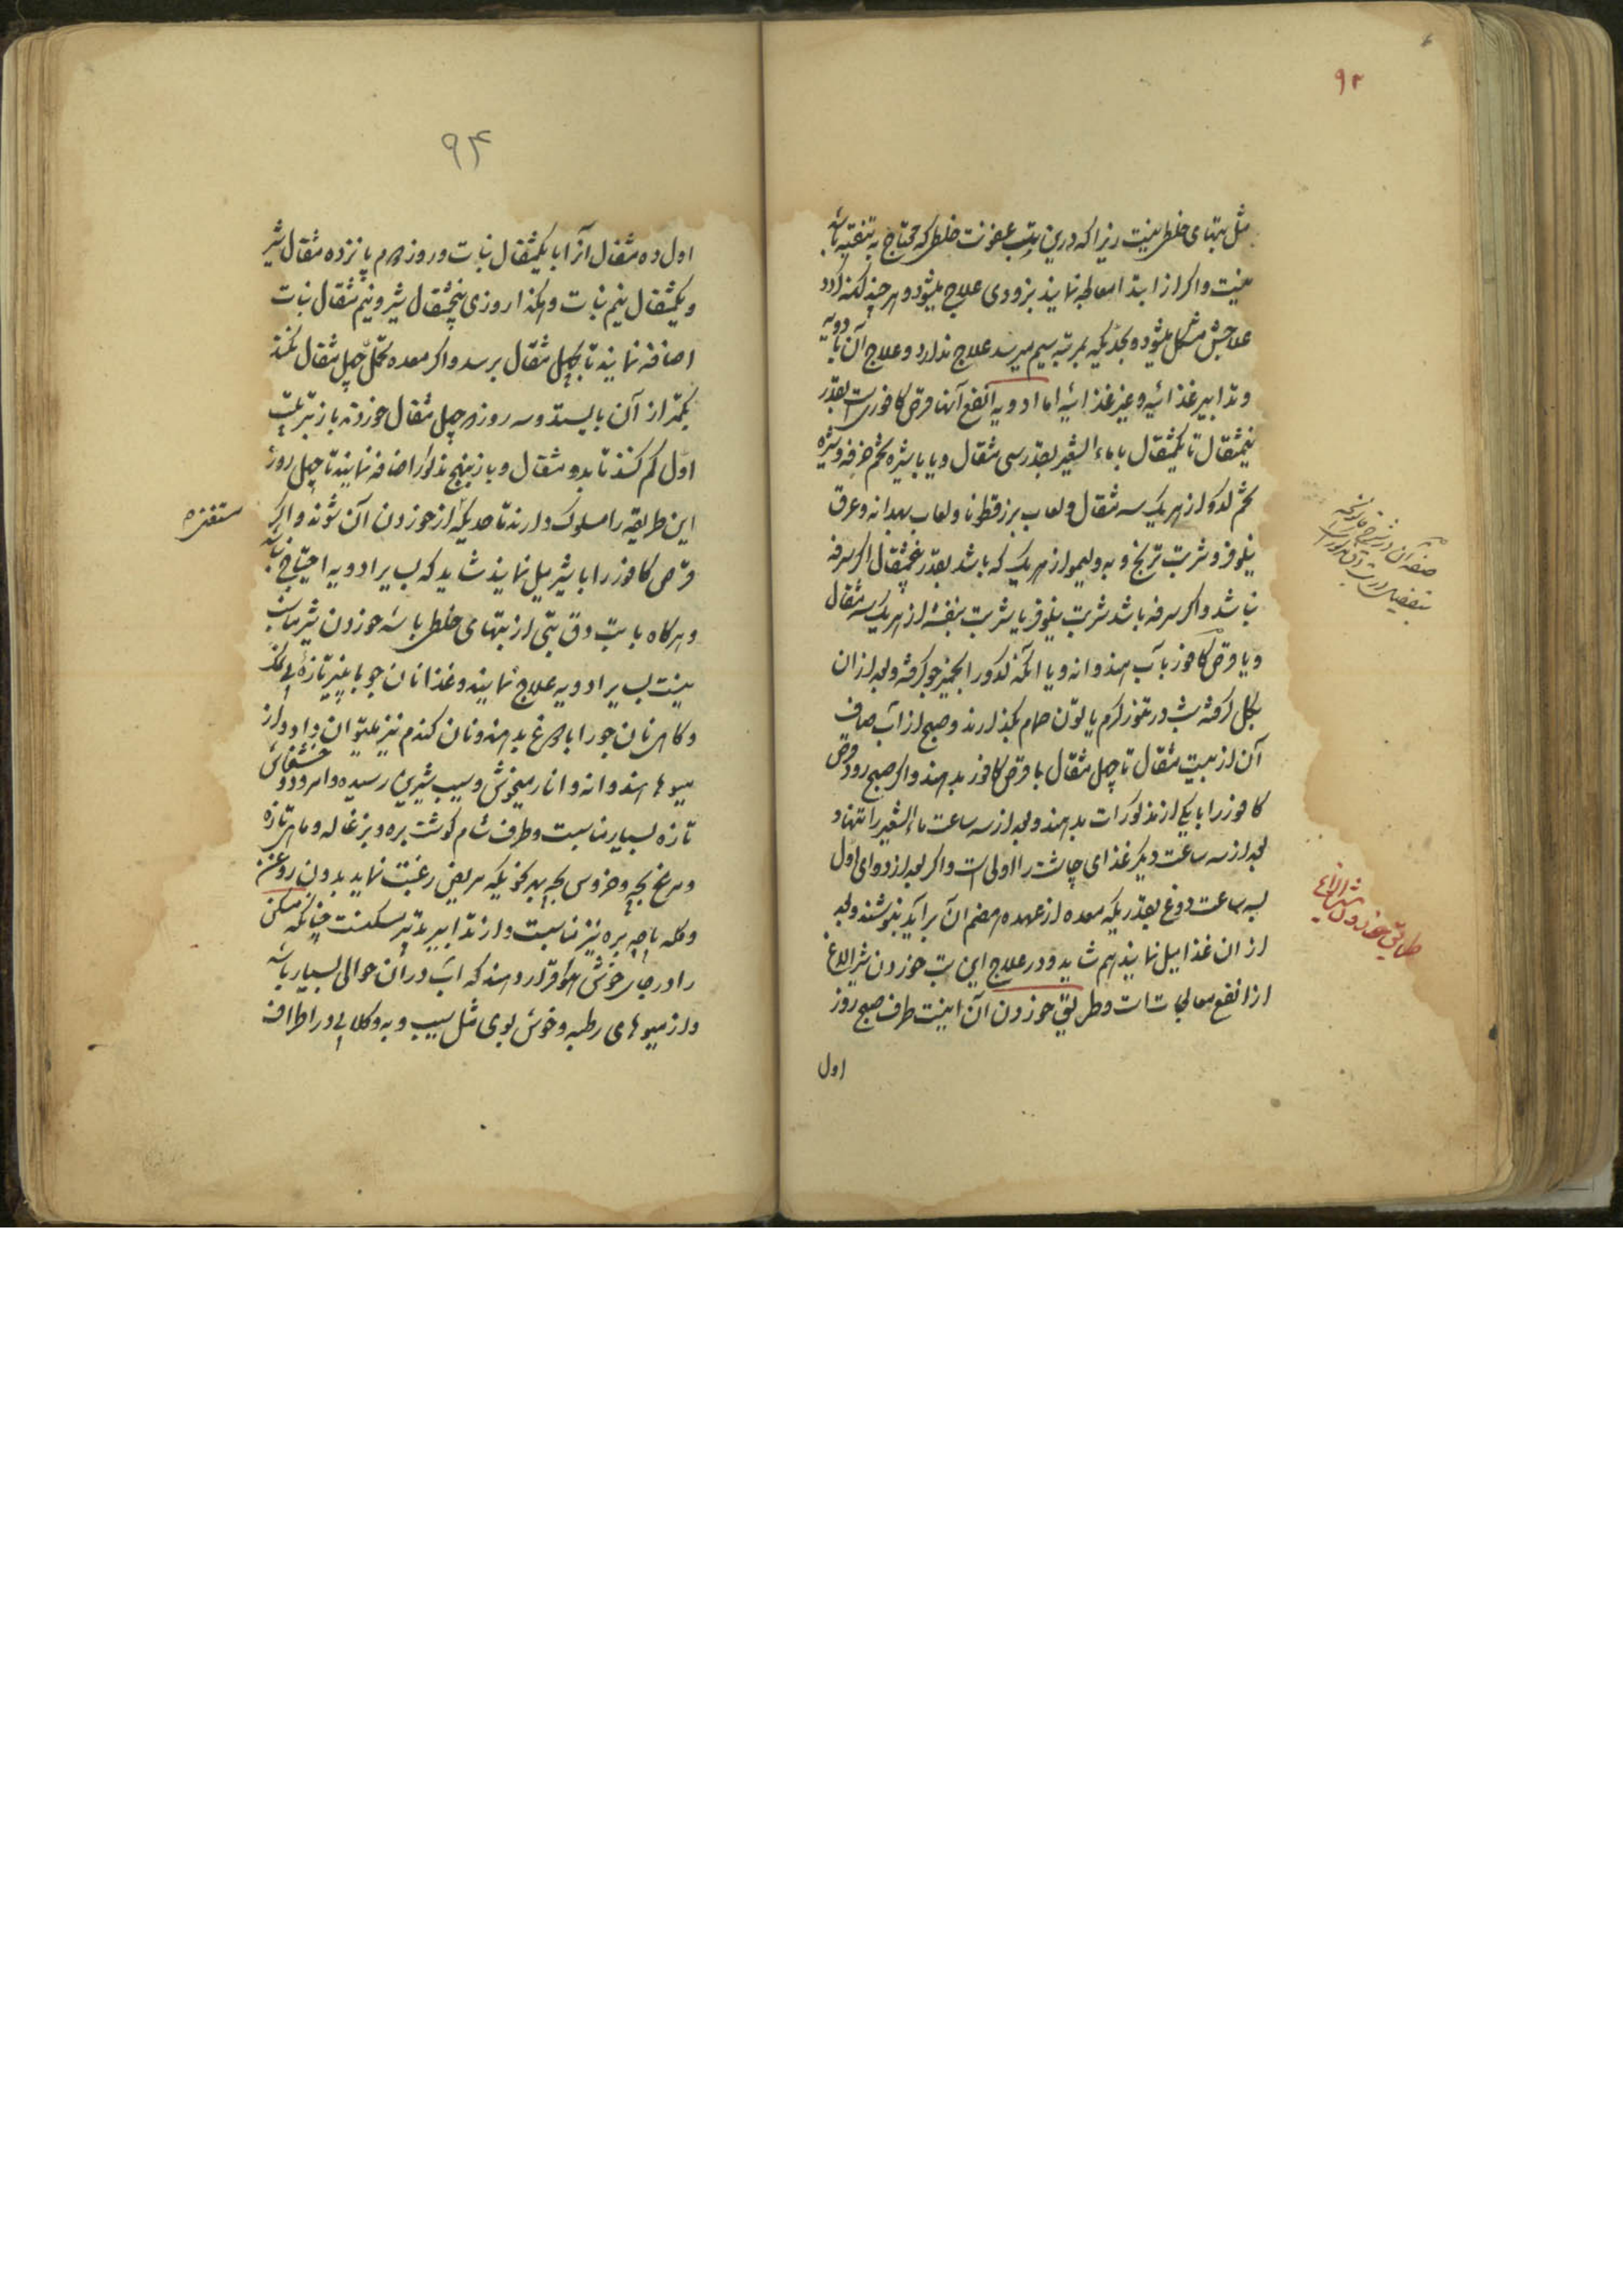 ۹۳
مثل تبهای خلطی نیست زیرا که درین تب عفونت خلطی که محتاج به تنقیه باشد
نیست و اگر از ابتدا معالجه نمایند بزودی علاج میشود و هر چند کهنه گردد
علاجش مشکل میشود و بحدیکه بمرتبه سیم میرسد علاج ندارد و علاج آن بادویه
و تدابیر غذائیه و غیر غذائیه اما ادویه انفع آنها قرص کافورست بقدر
نیمثقال تا یکمثقال با ماء الشعیر بقدر سی مثقال و یا با شیره تخم خرفه و شیره
تخم کدو از هریک سه مثقال و لعاب بزرقطونا و لعاب بهدانه و عرق
نیلوفر و شربت ترنج و به و لیمو از هریک که باشد بقدر پنجمثقال اگر سرفه
نباشد و اگر سرفه باشد شربت نیلوفر یا شربت بنفشه از هریک سه مثقال
و یا قرص کافور بآب هندوانه و یا آنکه کدو را بخمیر جو گرفته و بعد از ان
بگل گرفته شب در تنور گرم یا تون حمام بگذارند و صبح از آب صاف
آن از بیست مثقال تا چهل مثقال با قرص کافور بدهند و اگر صبح زود قرص
کافور را با یکی از مذکورات بدهند و بعد از سه ساعت ماء الشعیر را تنها و
بعد از سه ساعت دیگر غذای چاشت را اولی است و اگر بعد از دوای اول
بسه ساعت دوغ بقدریکه معده از عهده هضم آن برآید بنوشند و بعد
از ان غذا میل نمایند هم شاید و در علاج این تب خوردن شیر الاغ
از انفع معالجات است و طریق خوردن آن اینست طرف صبح روز
اول
بتفصیل
طریق خوردن شیر الاغ
۹۴
اول ده مثقال آنرا با یکمثقال نبات و روز دوم پانزده مثقال شیر
و یکمثقال نیم نبات و هکذا روزی پنجمثقال شیر و نیم مثقال نبات
اضافه نمایند تا بچهل مثقال برسد و اگر معده تحمل چهل مثقال نکند
بکمتر از آن بایستد و سه روز هر چهل مثقال خورده باز بترتیب
اول کم کنند تا بده مثقال و باز بنهج مذکور اضافه نمایند تا چهل روز
این طریقه را مسلوک دارند تا حدیکه از خوردن آن شوند و اگر
متنفر
قرص کافور را با شیر میل نمایند شاید که بسایر ادویه احتیاج نباشد
و هرگاه با تب دق تبی از تبهای خلطی باشد خوردن شیر مناسب
نیست بسایر ادویه علاج نمایند و غذا نان جو با پنیر تازه بی نمک
و گاهی نان جو را با دوغ بدهند و نان گندم نیز میتوان داد و از
میوها هندوانه و انار میخوش و سیب شیرین رسیده و امرود و خشخاش
تازه بسیار مناسبست و طرف شام گوشت بره و بزغاله و ماهی تازه
و مرغ بچه و خروس بچه بهر نحویکه مریض رغبت نماید بدون روغن
و کله پاچه بره نیز مناسبت و از تدابیر تدبیر مسکنست چنانکه مسکن
را در جای خوش هوا قرار دهند که آب در آن حوالی بسیار باشد
و از میوهای رطبه و خوش بوی مثل سیب و به و گلابی در اطراف